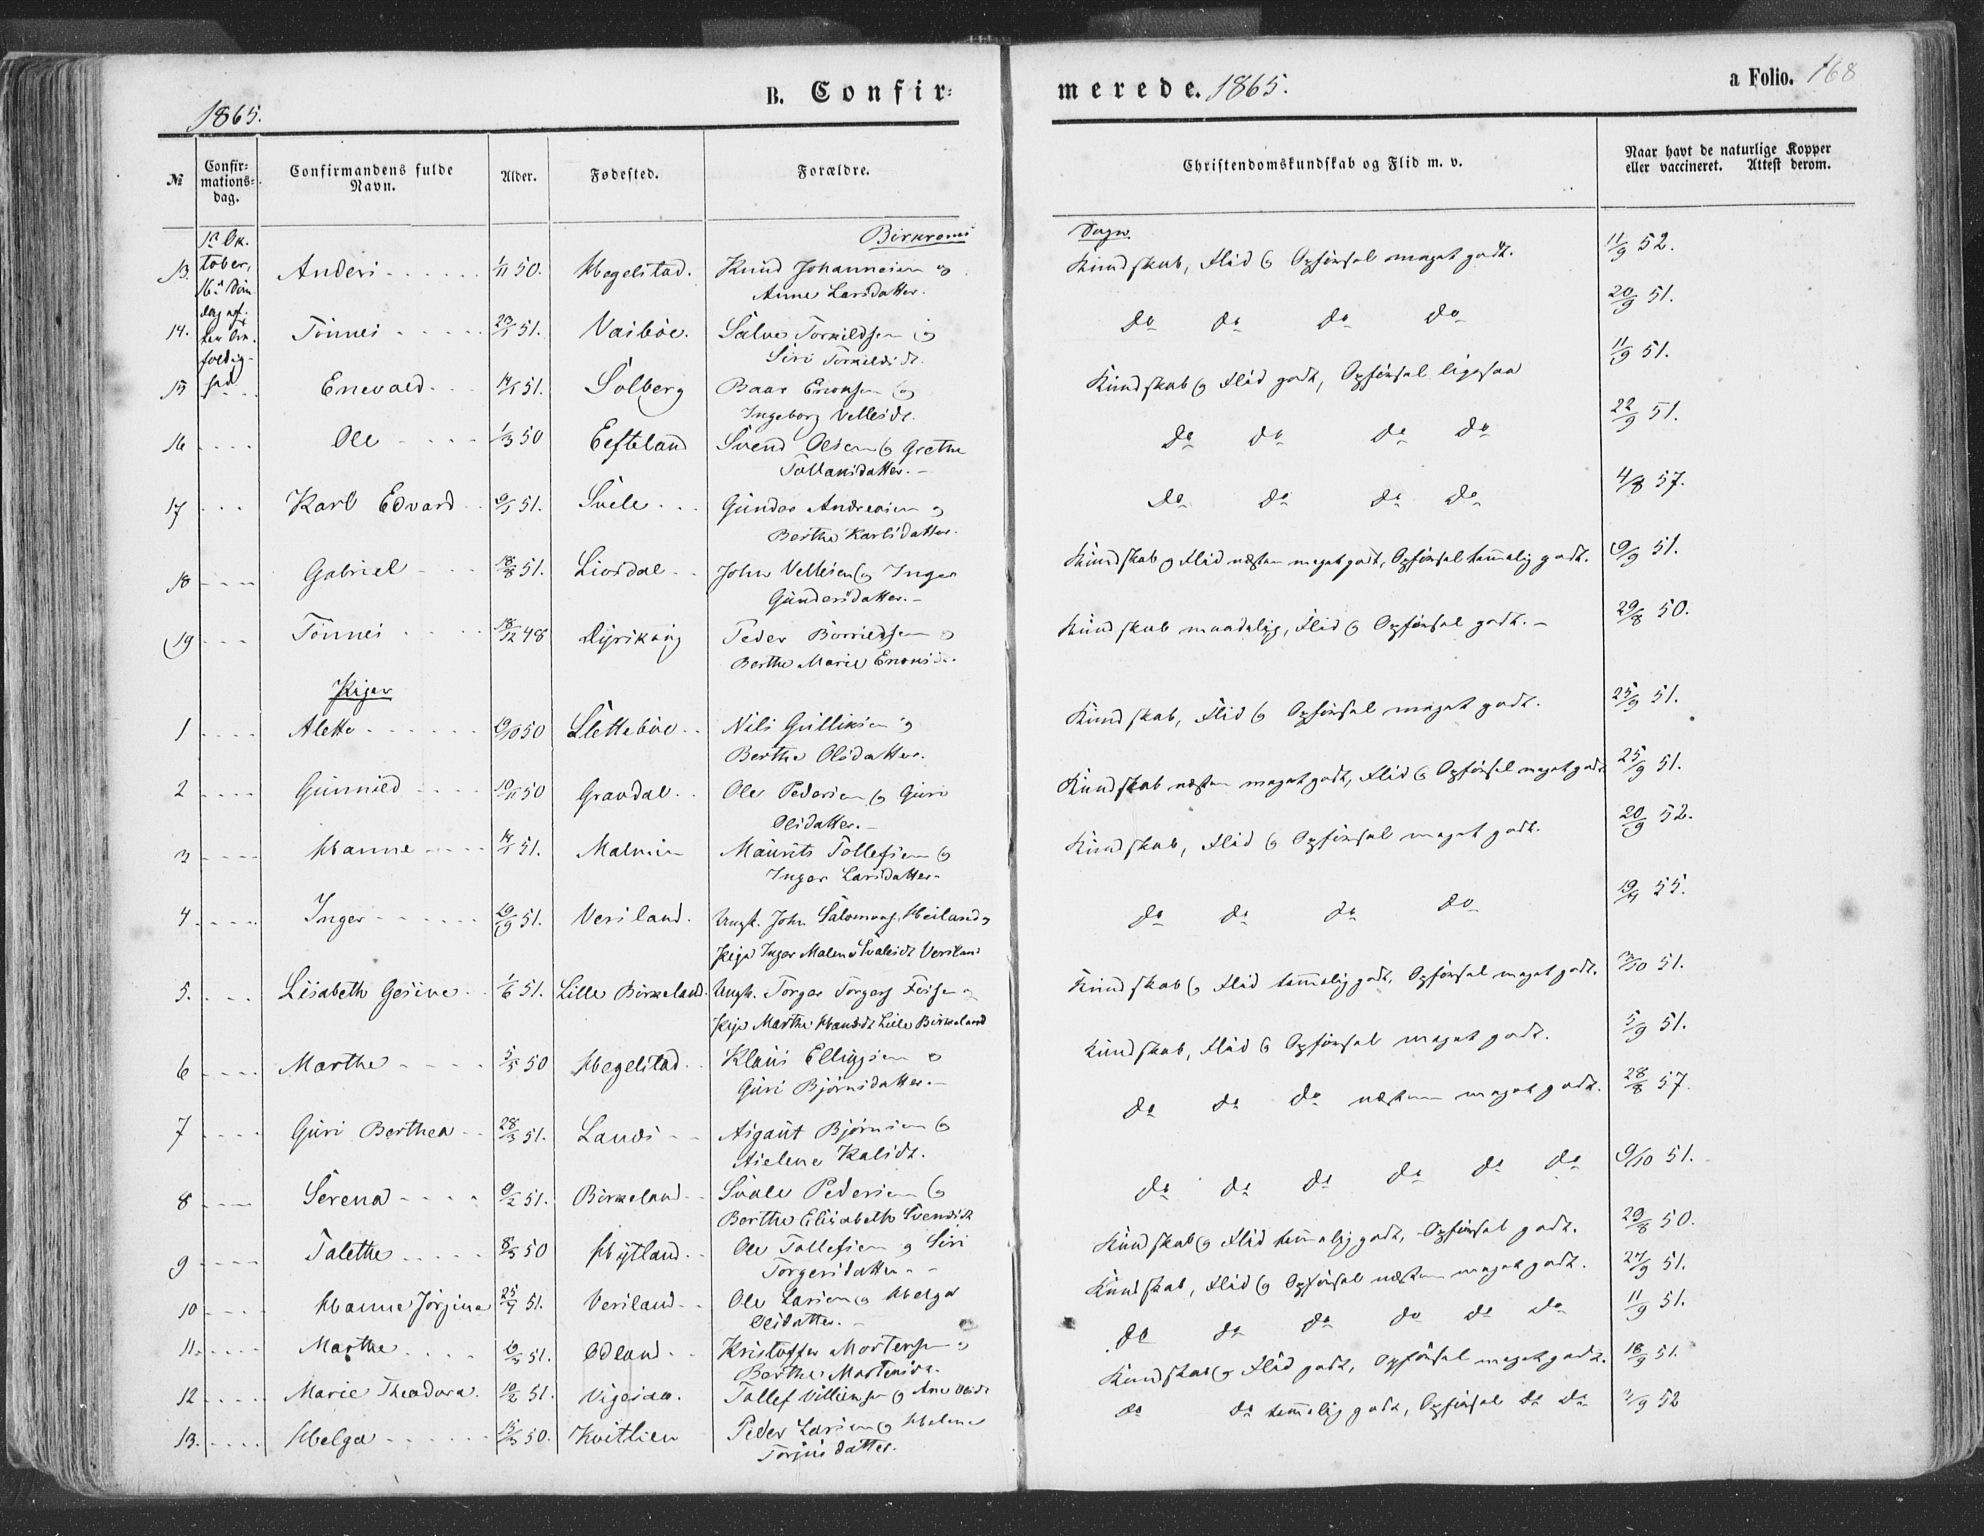 B. Confir=
merede. 1865.
a Folio. 168
1865.
№
Confir=
mations=
dag.
Confirmandens fulde
Navn.
Alder.
Fødested.
Forældre.
Christendomskundskab og Flid m. v.
Naar havt de naturlige Kopper
eller vaccineret. Attest derom.
Birkrems Sogn
13. Anders 1/11 50. Hegelstad. Knud Johannesen og Kundskab, Flid og Opførsel meget godt. 11/9 52.
Anne Larsdatter.
14. Tønnes 23/1 51. Vasbøe. Salve Torkildsen og do do do do 20/9 51.
Siri Torkildsdt.
15 Enevald 14/1 51. Solberg Baar Enoksen og Kundskab og Flid godt, Opførsel ligesaa 11/9 51.
Ingeborg Vellesdt.
16 Ole 1/3 50 Eefteland Svend Olsen og Grethe do do do do 22/9 51.
Tollaksdatter.
17 Karl Edvard 9/1 51. Svele Gunder Andreasen og do do do do 4/8 57.
Berthe Karlsdatter.
18 Gabriel 18/8 51. Liosdal John Vellesen og Inger Kundskab og Flid næsten meget godt, Opførsel temmelig godt. 9/9 51.
Gundersdatter.
19 Tønnes 18/12 48 Dyrskog Peder Børrildsen og Kundskab maadelig, Flid og Opførsel godt. 29/8 50.
Berthe Marie Enoksd.
Piger
1 Alette 19/10 50 Slettebøe Nils Gulliksen og Kundskab, Flid og Opførsel meget godt. 25/9 51.
Berthe Olsdatter.
2 Gunnild 10/11 50 Gravdal Ole Pedersen og Guri Kundskab næsten meget godt, Flid og Opførsel meget godt 25/9 51.
Olsdatter.
3 Hanne 14/1 51. Malmin Maurits Tollefsen og Kundskab, Flid og Opførsel meget godt. 20/9 52.
Inger Larsdatter
4. Inger 29/9 51. Versland. Ungk. John Salomons. Heiland og do do do do 19/9 55.
Pige Inger Malene Svalesdt Versland
5. Lisabeth Gesine 1/6 51. Lille Birkeland. Ungk. Torger Torgers Kundskab og Flid temmelig godt, Opførsel meget godt. 3/10 51.
Pige Marthe Hansdt Lille Birkeland
6 Marthe 5/5 50 Hegelstad Klaus Ellingsen og Kundskab, Flid og Opførsel meget godt. 5/9 51.
Guri Bjørnsdatter.
7 Guri Berthea 28/3 51. Lauds Asgaut Bjørnsen og do do do næsten meget godt. 28/8 57.
Aselene Kalsdt.
8 Serena 9/2 51. Birkeland Svale Pedersen og do do do do do do 9/10 51.
Berthe Elisabeth Svensdt
9 Talette 8/3 50 Hytland Ole Tollefsen og Siri Kundskab og Flid temmelig godt, Opførsel godt. 29/8 50.
Torgersdatter
10 Hanne Jørgine 25/9 51. Versland Ole Larsen og Helga Kundskab, Flid og Opførsel næsten meget godt. 24/9 51.
Olsdatter.
11. Marthe 9/3 51. Odland Kristoffer Mortensen og do do do do do do 11/9 51.
Berthe Mortensdt.
12 Marie Theodora. 10/2 51. Vigesaa. Tollef Villiemsen og Ane Olsdt Kundskab og Flid godt, Opførsel meget godt. 18/9 51.
13. Helga 50. Kvitlien Peder Larsen og Helene do do temmelig godt, Opførsel do do 2/9 52
Torjusdatter.
1ste Ok-
tober,
16de Søn
dag ef.
Tre
foldig-
hed